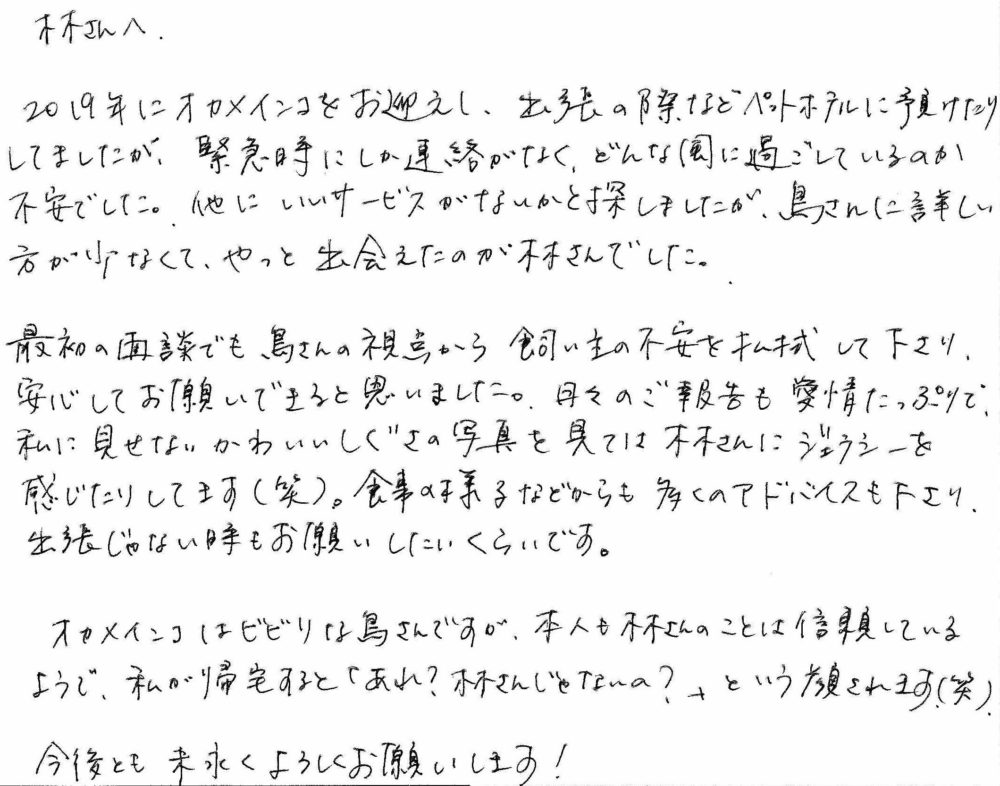 林さんへ.
2019年にオカメインコをお迎えし、出張の際などペットホテルに予けたり
してましたが、緊急時にしか連絡がなく、どんな風に過ごしているのか
不安でした。他にいいサービスがないかと探しましたが、鳥さんに詳しい
方が少なくて、やっと出会えたのが林さんでした。
最初の面談でも鳥さんの視点から飼い主の不安を払拭して下さり、
安心してお願いできると思いました。日々のご報告も愛情たっぷりで、
私に見せないかわいいしぐさの写真を見ては林さんにジェラシーを
感じたりしてます(笑)。食事の様子などからも多くのアドバイスも下さり、
出張じゃない時もお願いしたいくらいです。
オカメインコはビビりな鳥さんですが、本人も林さんのことは信頼している
ようで、私が帰宅すると「あれ?林さんじゃないの?」という顔されます(笑)
今後とも末永くよろしくお願いします!